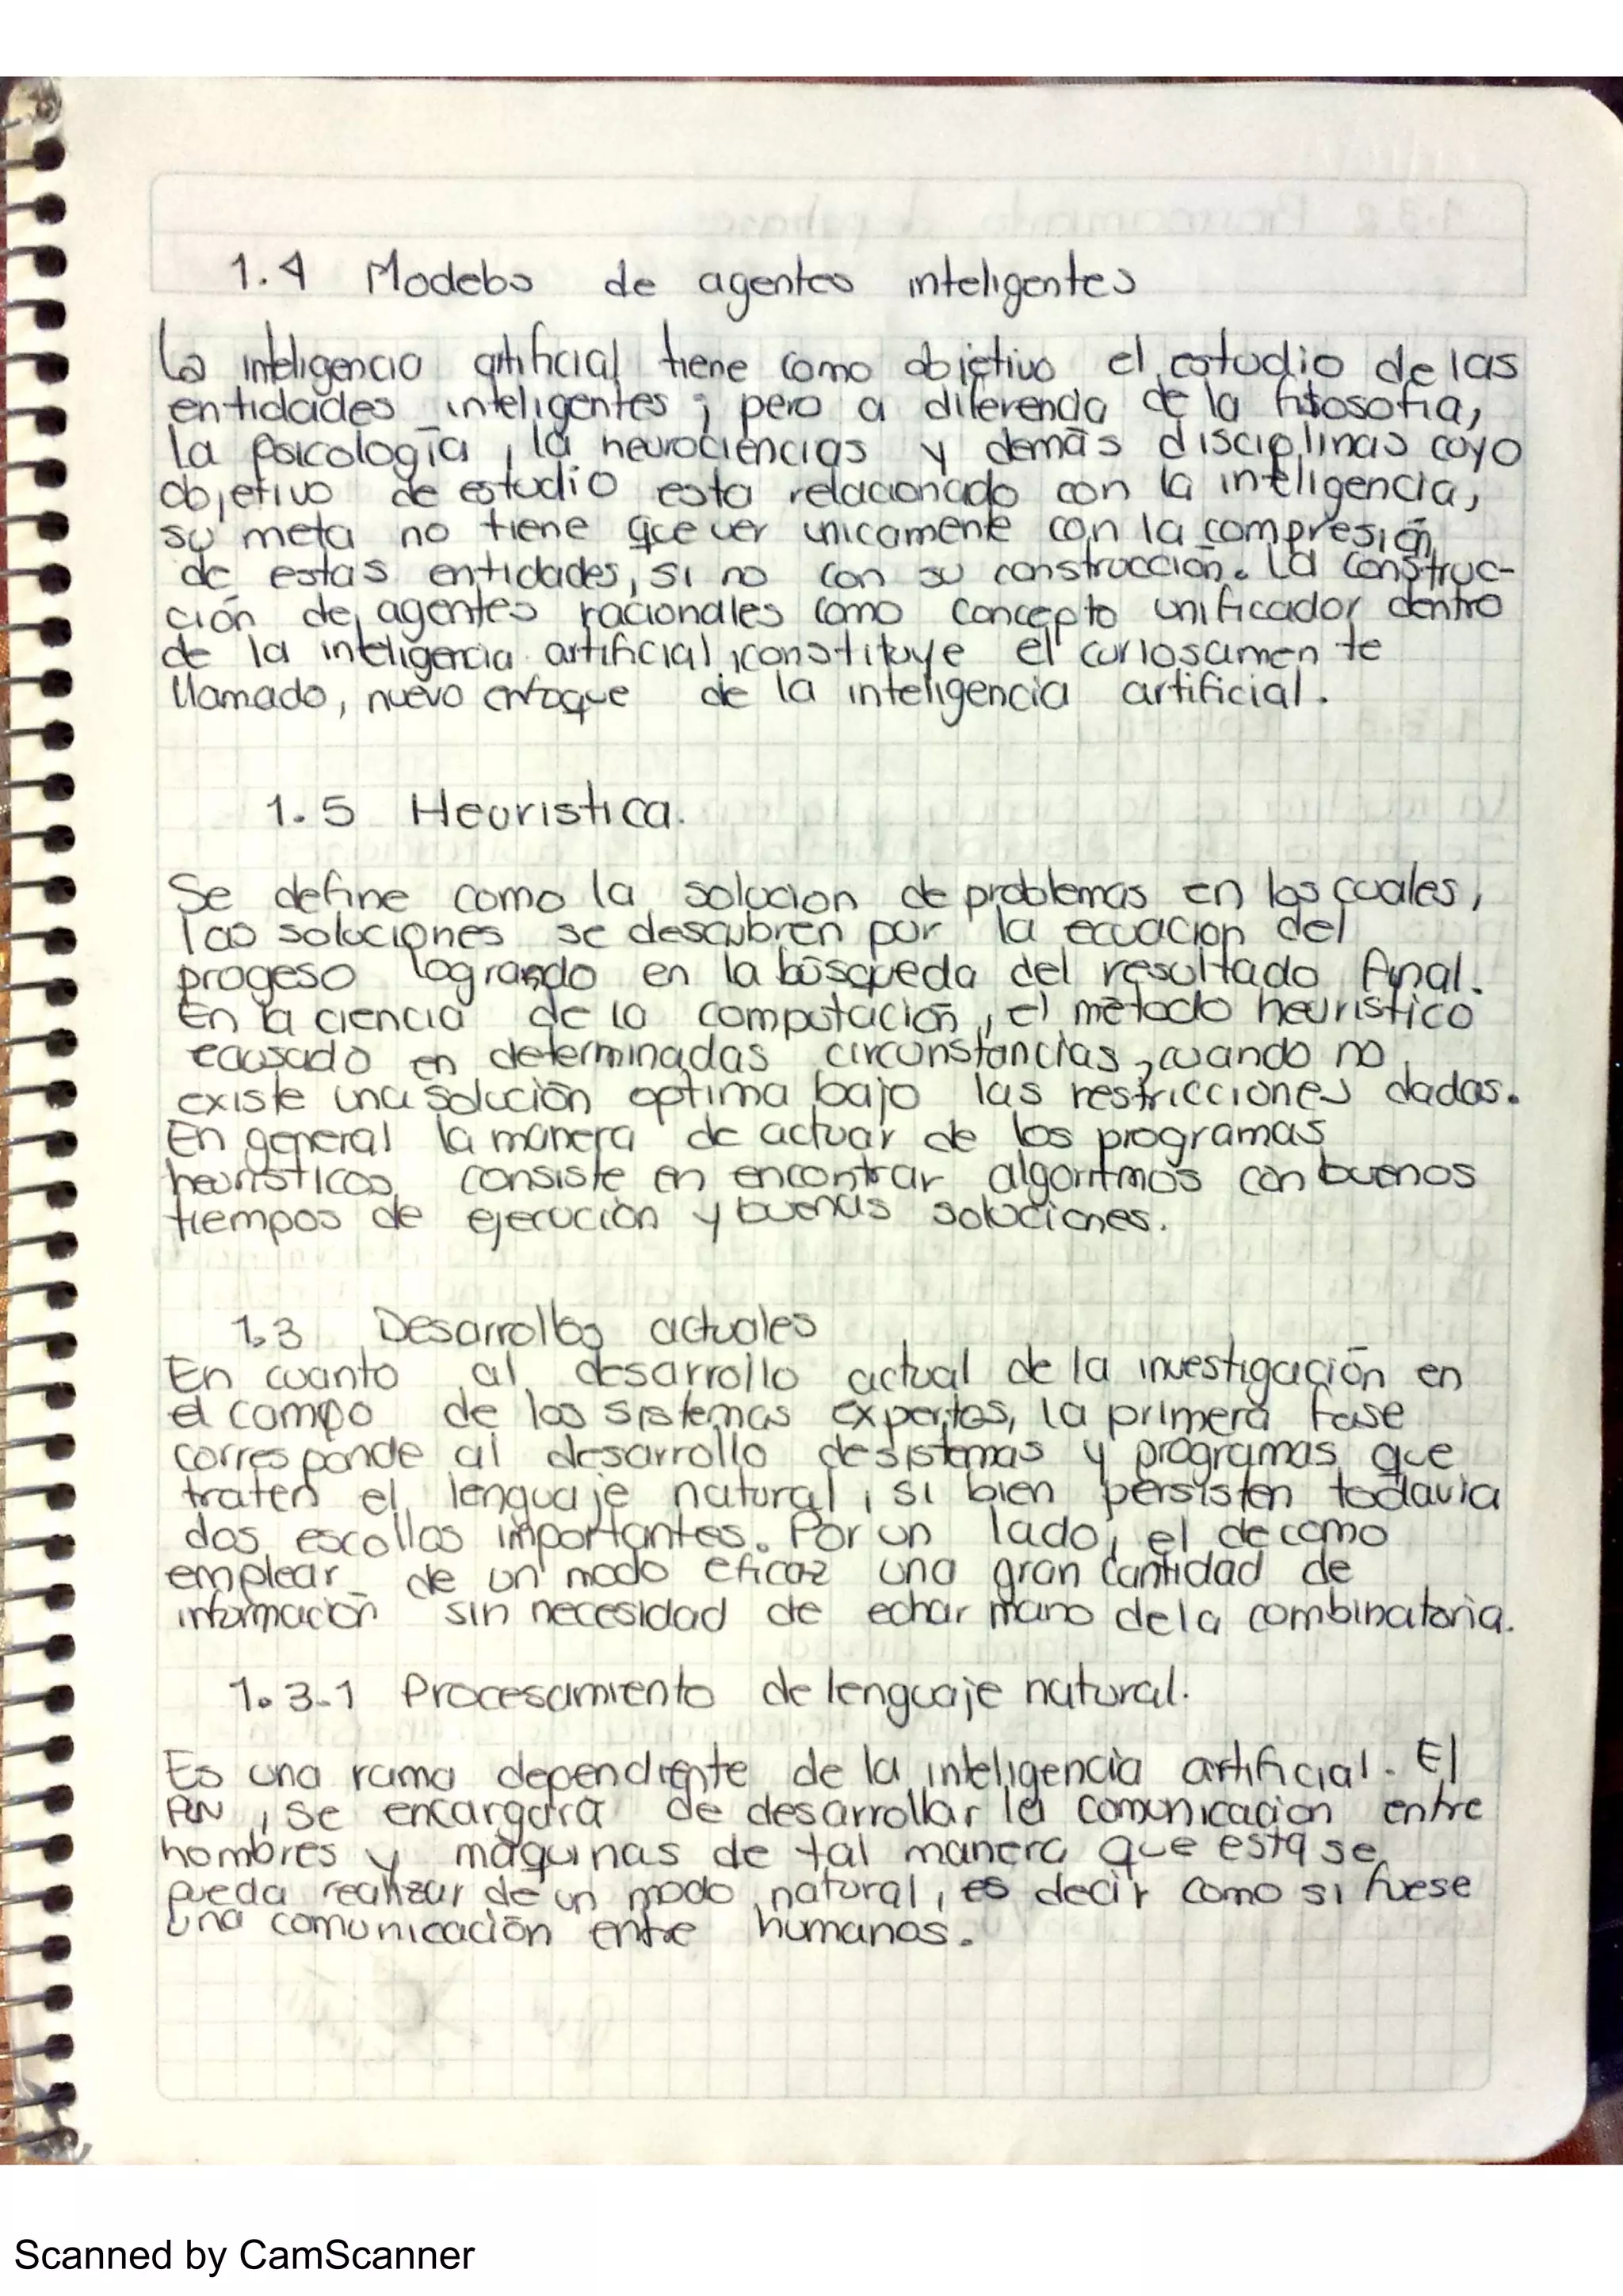 1.4 Modelos de agentes inteligentes
La inteligencia artificial tiene como objetivo el estudio de las
entidades inteligentes; pero a diferencia de la filosofia,
la psicología, la neurociencias y demás disciplinas cuyo
objetivo de estudio esta relacionado con la inteligencia,
su meta no tiene que ver unicamente con la compresión
de estas entidades, si no con su construcción. La construc-
ción de agentes racionales como concepto unificador dentro
de la inteligencia artificial, constituye el curiosamente
llamado, nuevo enfoque de la inteligencia artificial.
1.5 Heuristica.
Se define como la solucion de problemas en los cuales,
las soluciones se descubren por la ecuacion del
progeso logrando en la búsqueda del resultado final.
En la ciencia de la computación, el método heuristico
en determinadas circunstancias, cuando no
existe una solución optima bajo las restricciones dadas.
En general la manera de actuar de los programas
heuristicos consiste en encontrar algoritmos con buenos
tiempos de ejecución y buenas soluciones.
1.3 Desarrollos actuales
En cuanto al desarrollo actual de la investigación en
el campo de los sistemas expertos, la primera fase
corresponde al desarrollo de sistemas y programas que
traten el lenguaje natural, si bien persisten todavia
dos escollos importantes. Por un lado, el de como
emplear de un modo eficaz una gran cantidad de
información sin necesidad de echar mano de la combinatoria.
1.3.1 Procesamiento de lenguaje natural.
Es una rama dependiente de la inteligencia artificial. El
PLN, se encargara de desarrollar la comunicacion entre
hombres y máquinas de tal manera que esta se
pueda realizar de un modo natural, es decir como si fuese
una comunicación entre humanos.
Scanned by CamScanner